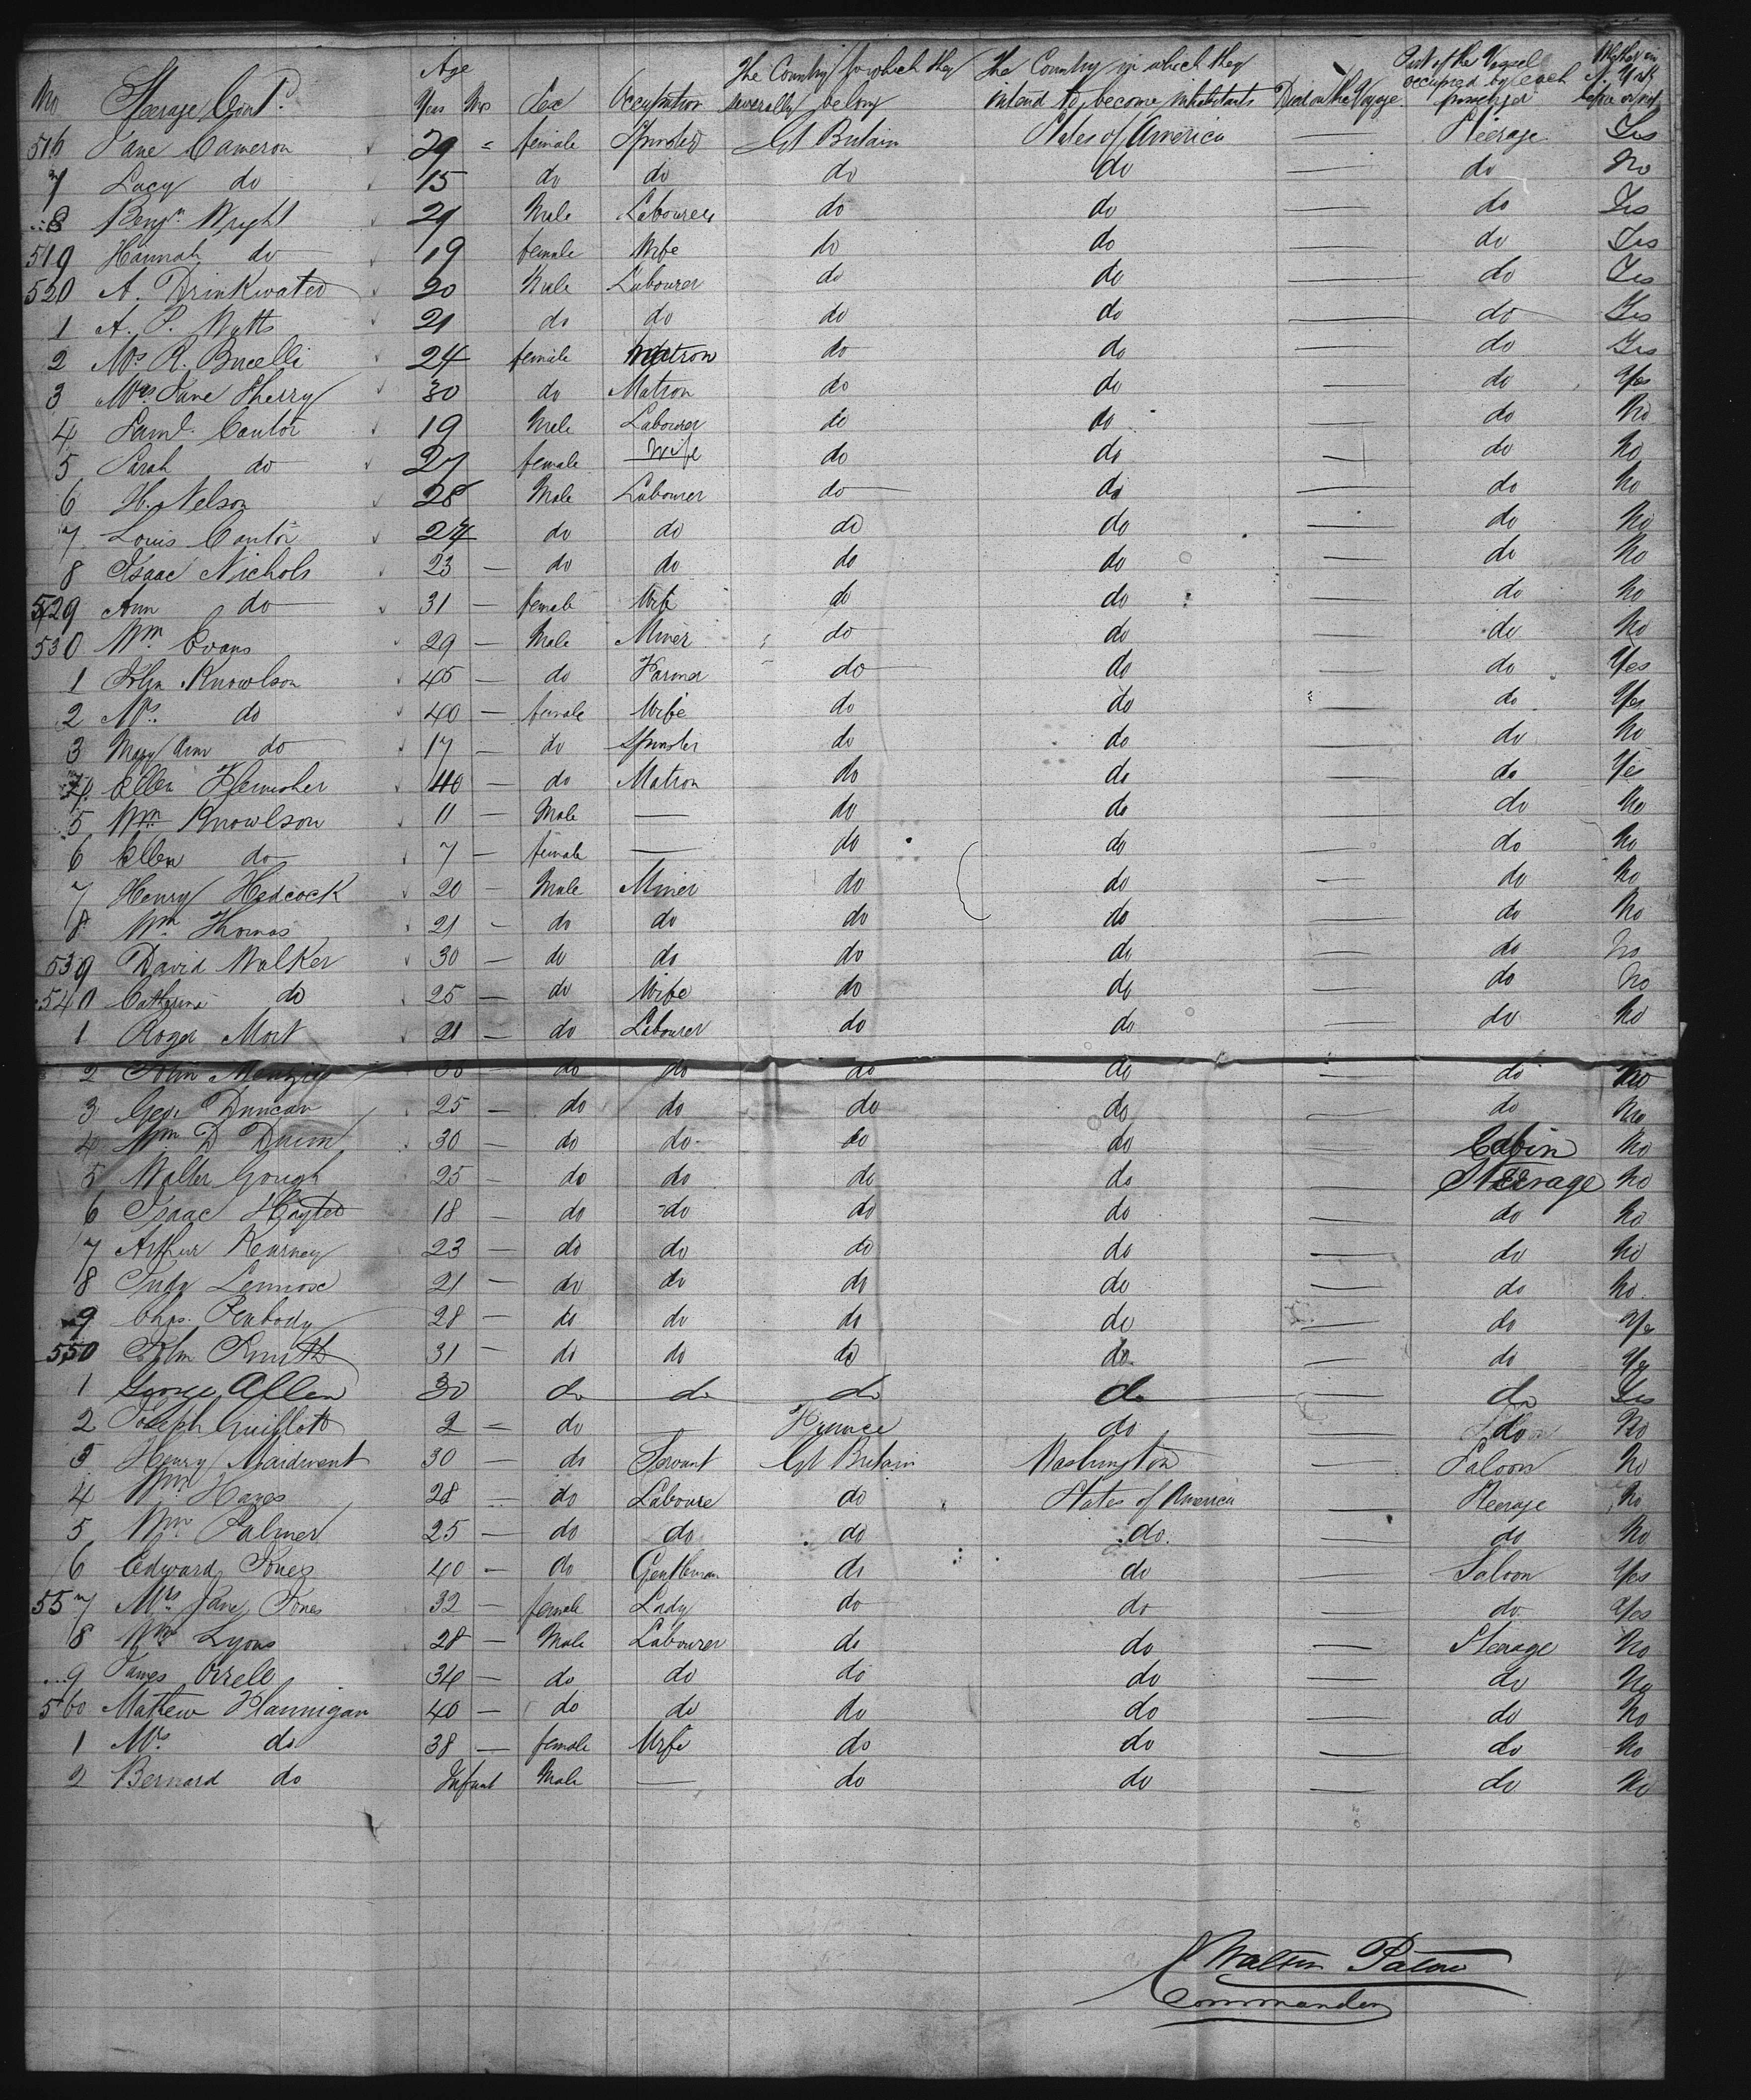 No Steerage Cont.d Age Yrs Mos Sex Occupation The Country to which they severally belong The Country in which they intend to become inhabitants Died on the Voyage Part of the Vessel occupied by each passenger Whether in N. York before or not
516 Jane Cameron 29 female Spinster Gt Britain States of America — Steerage Yes
7 Lucy do 15 do do do do — do No
8 Benjn Wright 29 Male Labourer do do — do Yes
519 Hannah do 19 female Wife do do — do Yes
520 A. Drinkwater 20 Male Labourer do do — do Yes
1 A. P. Watts 21 do do do do — do Yes
2 Mrs R. Bucelli 24 female Matron do do — do Yes
3 Mrs Jane Sherry 30 do Matron do do — do Yes
4 Saml. Cantor 19 Male Labourer do do — do No
5 Sarah do 27 female Wife do do — do No
6 H. Nelson 28 Male Labourer do do — do No
7 Louis Cantor 24 do do do do — do No
8 Isaac Nichols 23 — do do do do — do No
529 Ann do 31 — female Wife do do — do No
530 Wm. Evans 29 — Male Miner do do — do No
1 John Knowlson 45 — do Farmer do do — do Yes
2 Mrs. do 40 — female Wife do do — do Yes
3 Mary Ann do 17 — do Spinster do do — do No
4 Ellen 40 — do Matron do do — do Yes
5 Wm Knowlson 11 — Male — do do — do No
6 Ellen do 7 — female — do do — do No
7 Henry Hedcock 20 — Male Miner do do — do No
8 Wm Thomas 21 — do do do do — do No
539 David Walker 30 — do do do do — do No
540 Catherine do 25 — do Wife do do — do No
1 Roger Mort 21 — do Labourer do do — do No
2 John — do do do do — do No
3 Geo. Duncan 25 — do do do do — do No
4 Wm D 30 — do do do do — Cabin No
5 Walter Gough 25 — do do do do — Steerage No
6 Isaac Hayter 18 — do do do do — do No
7 Arthur Kearney 23 — do do do do — do No
8 Judy Lennox 21 — do do do do — do No
9 Chas. Peabody 28 — do do do do — do Yes
550 John Smith 31 — do do do do — do Yes
1 George Allen 30 do do do do — do Yes
2 Joseph Guillott 2 — do — France do do No
3 Henry Maidment 30 — do Servant Gt Britain Washington — Saloon No
4 Wm Hayes 28 — do Laboure do States of America — Steerage No
5 Wm Palmer 25 — do do do do — do No
6 Edward Jones 40 — do Gentleman do do — Saloon Yes
557 Mrs Jane Jones 32 — female Lady do do — do Yes
8 Wm Lyons 28 — Male Labourer do do — Steerage No
9 James Orrell 34 — do do do do — do No
560 Mathew Flannigan 40 — do do do do — do No
1 Mrs do 38 — female Wife do do — do No
2 Bernard do Infant Male — do do — do No
Walter Paton
Commander